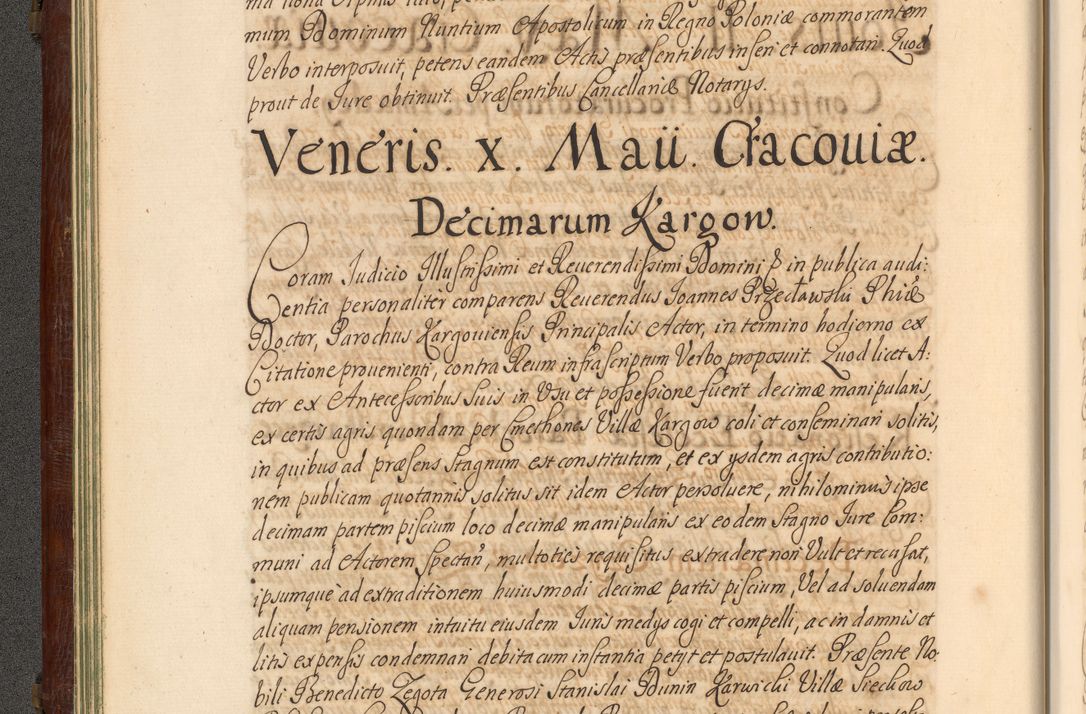 mum Dominum Nuntium Apostolicum in Regno Poloniæ commorantem
Verbo interposuit, petens eandem Actis præsentibus inseri et connotari. Quod
prout de Jure obtinuit. Præsentibus Cancellariæ Notarijs.
Veneris. X. Maii. Cracouiæ.
Decimarum Kargow.
Coram Judicio Illustrissimi et Reuerendissimi Domini ꝑ in publica audi:
Centia personaliter comparens Reuerendus Joannes Przecławski Phiæ
Doctor, Parochus Kargouiensis Principalis Actor, in termino hodierno ex
Citatione prouenienti, contra Reum infrascriptum Verbo proposuit. Quod licet A:
ctor ex Antecessoribus suis in Vsu et possessione fuerit decimæ manipularis,
ex certis agris quondam per Cmethones Villæ Kargow coli et conseminari solitis,
in quibus ad præsens stagnum est constitutum, et ex ijsdem agris contributio:
nem publicam quotannis solitus sit idem Actor persoluere, nihilominus ipse
decimam partem piscium loco decimæ manipularis ex eodem stagno Jure Com:
muni ad Actorem spectan̄, multoties requisitus extradere non Vult et recusat,
ipsumque ad extraditionem huiusmodi decimæ partis piscium, Vel ad soluendam
aliquam pensionem intuitu eiusdem Juris medijs cogi et compelli, ac in damnis et
litis expensis condemnari debita cum instantia petijt et postulauit. Præsente No:
bili Benedicto Zegota Generosi Stanislai Dunin Karwicki Villæ Sieckow